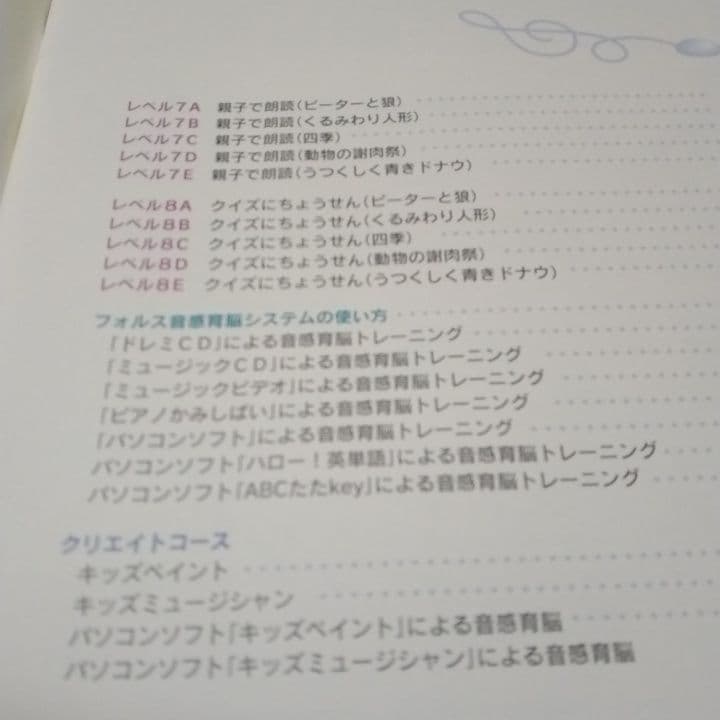 レベル7A 親子で朗読(ピーターと狼)
レベル7B 親子で朗読(くるみわり人形)
レベル7C 親子で朗読(四季)
レベル7D 親子で朗読(動物の謝肉祭)
レベル7E 親子で朗読(うつくしく青きドナウ)
レベル8A クイズにちょうせん(ピーターと狼)
レベル8B クイズにちょうせん(くるみわり人形)
レベル8C クイズにちょうせん(四季)
レベル8D クイズにちょうせん(動物の謝肉祭)
レベル8E クイズにちょうせん(うつくしく青きドナウ)
フォルス音感育脳システムの使い方
「ドレミCD」による音感育脳トレーニング
「ミュージックCD」による音感育脳トレーニング
「ミュージックビデオ」による音感育脳トレーニング
「ピアノかみしばい」による音感育脳トレーニング
「パソコンソフト」による音感育脳トレーニング
パソコンソフト「ハロー!英単語」による音感育脳トレーニング
パソコンソフト「ABCたたkey」による音感育脳トレーニング
クリエイトコース
キッズペイント
キッズミュージシャン
パソコンソフト「キッズペイント」による音感育脳
パソコンソフト「キッズミュージシャン」による音感育脳